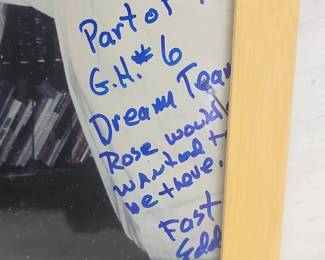 Part of
G.H.#6
Dream Team
Rose would
wanted t
be there.
Fast
Edd